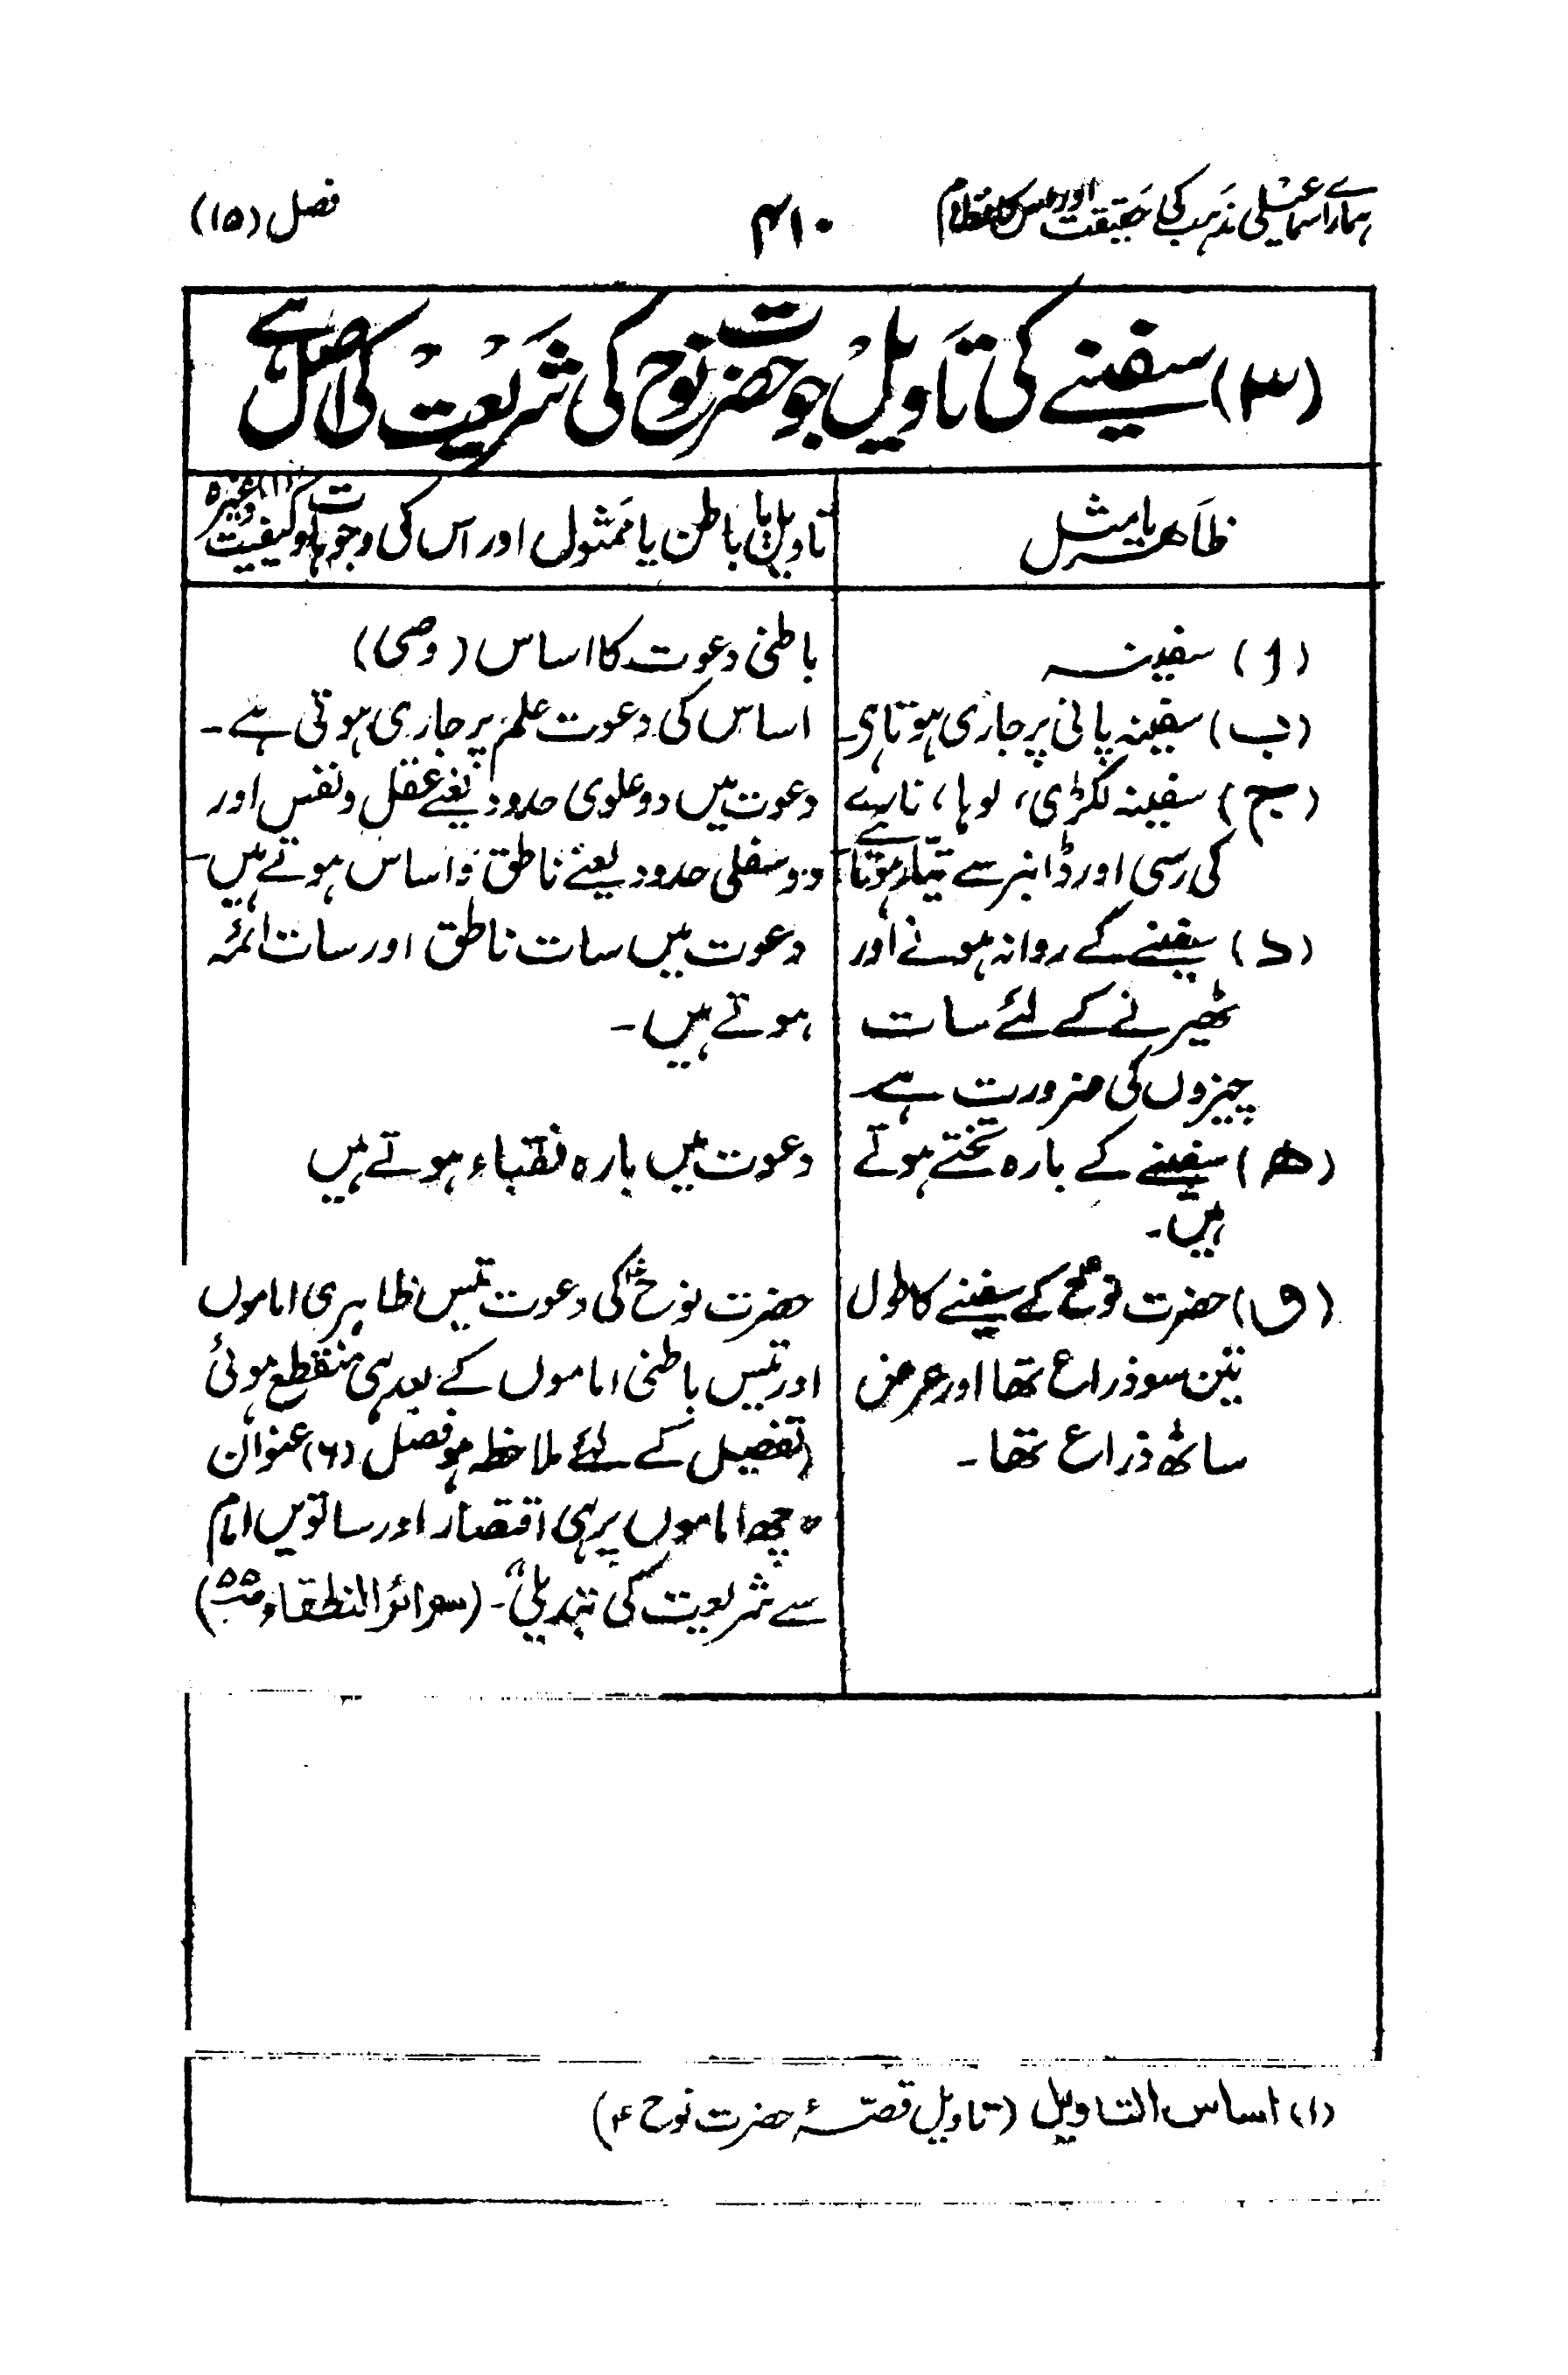 ہمارے اسماعیلی مذہب کی حقیقت اور اس کا نظام
۴۱۰
فصل (۱۵)
(۳) سفینے کی تاویل جو حضرت نوح کی شریعت کی اصل ہے
ظاہر یا مثل
تاویل یا باطن یا ممثول اور اس کی وجوہات و کیفیت وغیرہ (۱)
(ا) سفینہ
باطنی دعوت کا اساس (وصی)
(ب) سفینہ پانی پر جاری ہوتا ہی۔
اساس کی دعوت علم پر جاری ہوتی ہے۔
(ج) سفینہ لکڑی، لوہا، نارے
کی رسی اور ڈانبر سے تیار ہوتا ہے۔
دعوت میں دو علوی حدود یعنے عقل و نفس اور
دو سفلی حدود یعنے ناطق و اساس ہوتے ہیں۔
(د) سفینے کے روانہ ہونے اور
ٹھیرنے کے لئے سات
چیزوں کی ضرورت ہے۔
دعوت میں سات ناطق اور سات ائمہ
ہوتے ہیں۔
(ھ) سفینے کے بارہ تختے ہوتے
ہیں۔
دعوت میں بارہ نقباء ہوتے ہیں
(و) حضرت نوحؑ کے سفینے کا طول
تین سو ذراع تھا اور عرض
ساٹھ ذراع تھا۔
حضرت نوحؑ کی دعوت تیس ظاہری اماموں
اور تیس باطنی اماموں کے بعد ہی منقطع ہوئی
(تفصیل کے لئے ملاحظہ ہو فصل (۶) عنوان
"چھ اماموں پر ہی اقتصار اور ساتویں امام
سے شریعت کی تبدیلی"۔ (سرائر النطقاء ص۵۵)
(۱) اساس التاویل (تاویل قصّۂ حضرت نوح ؑ)